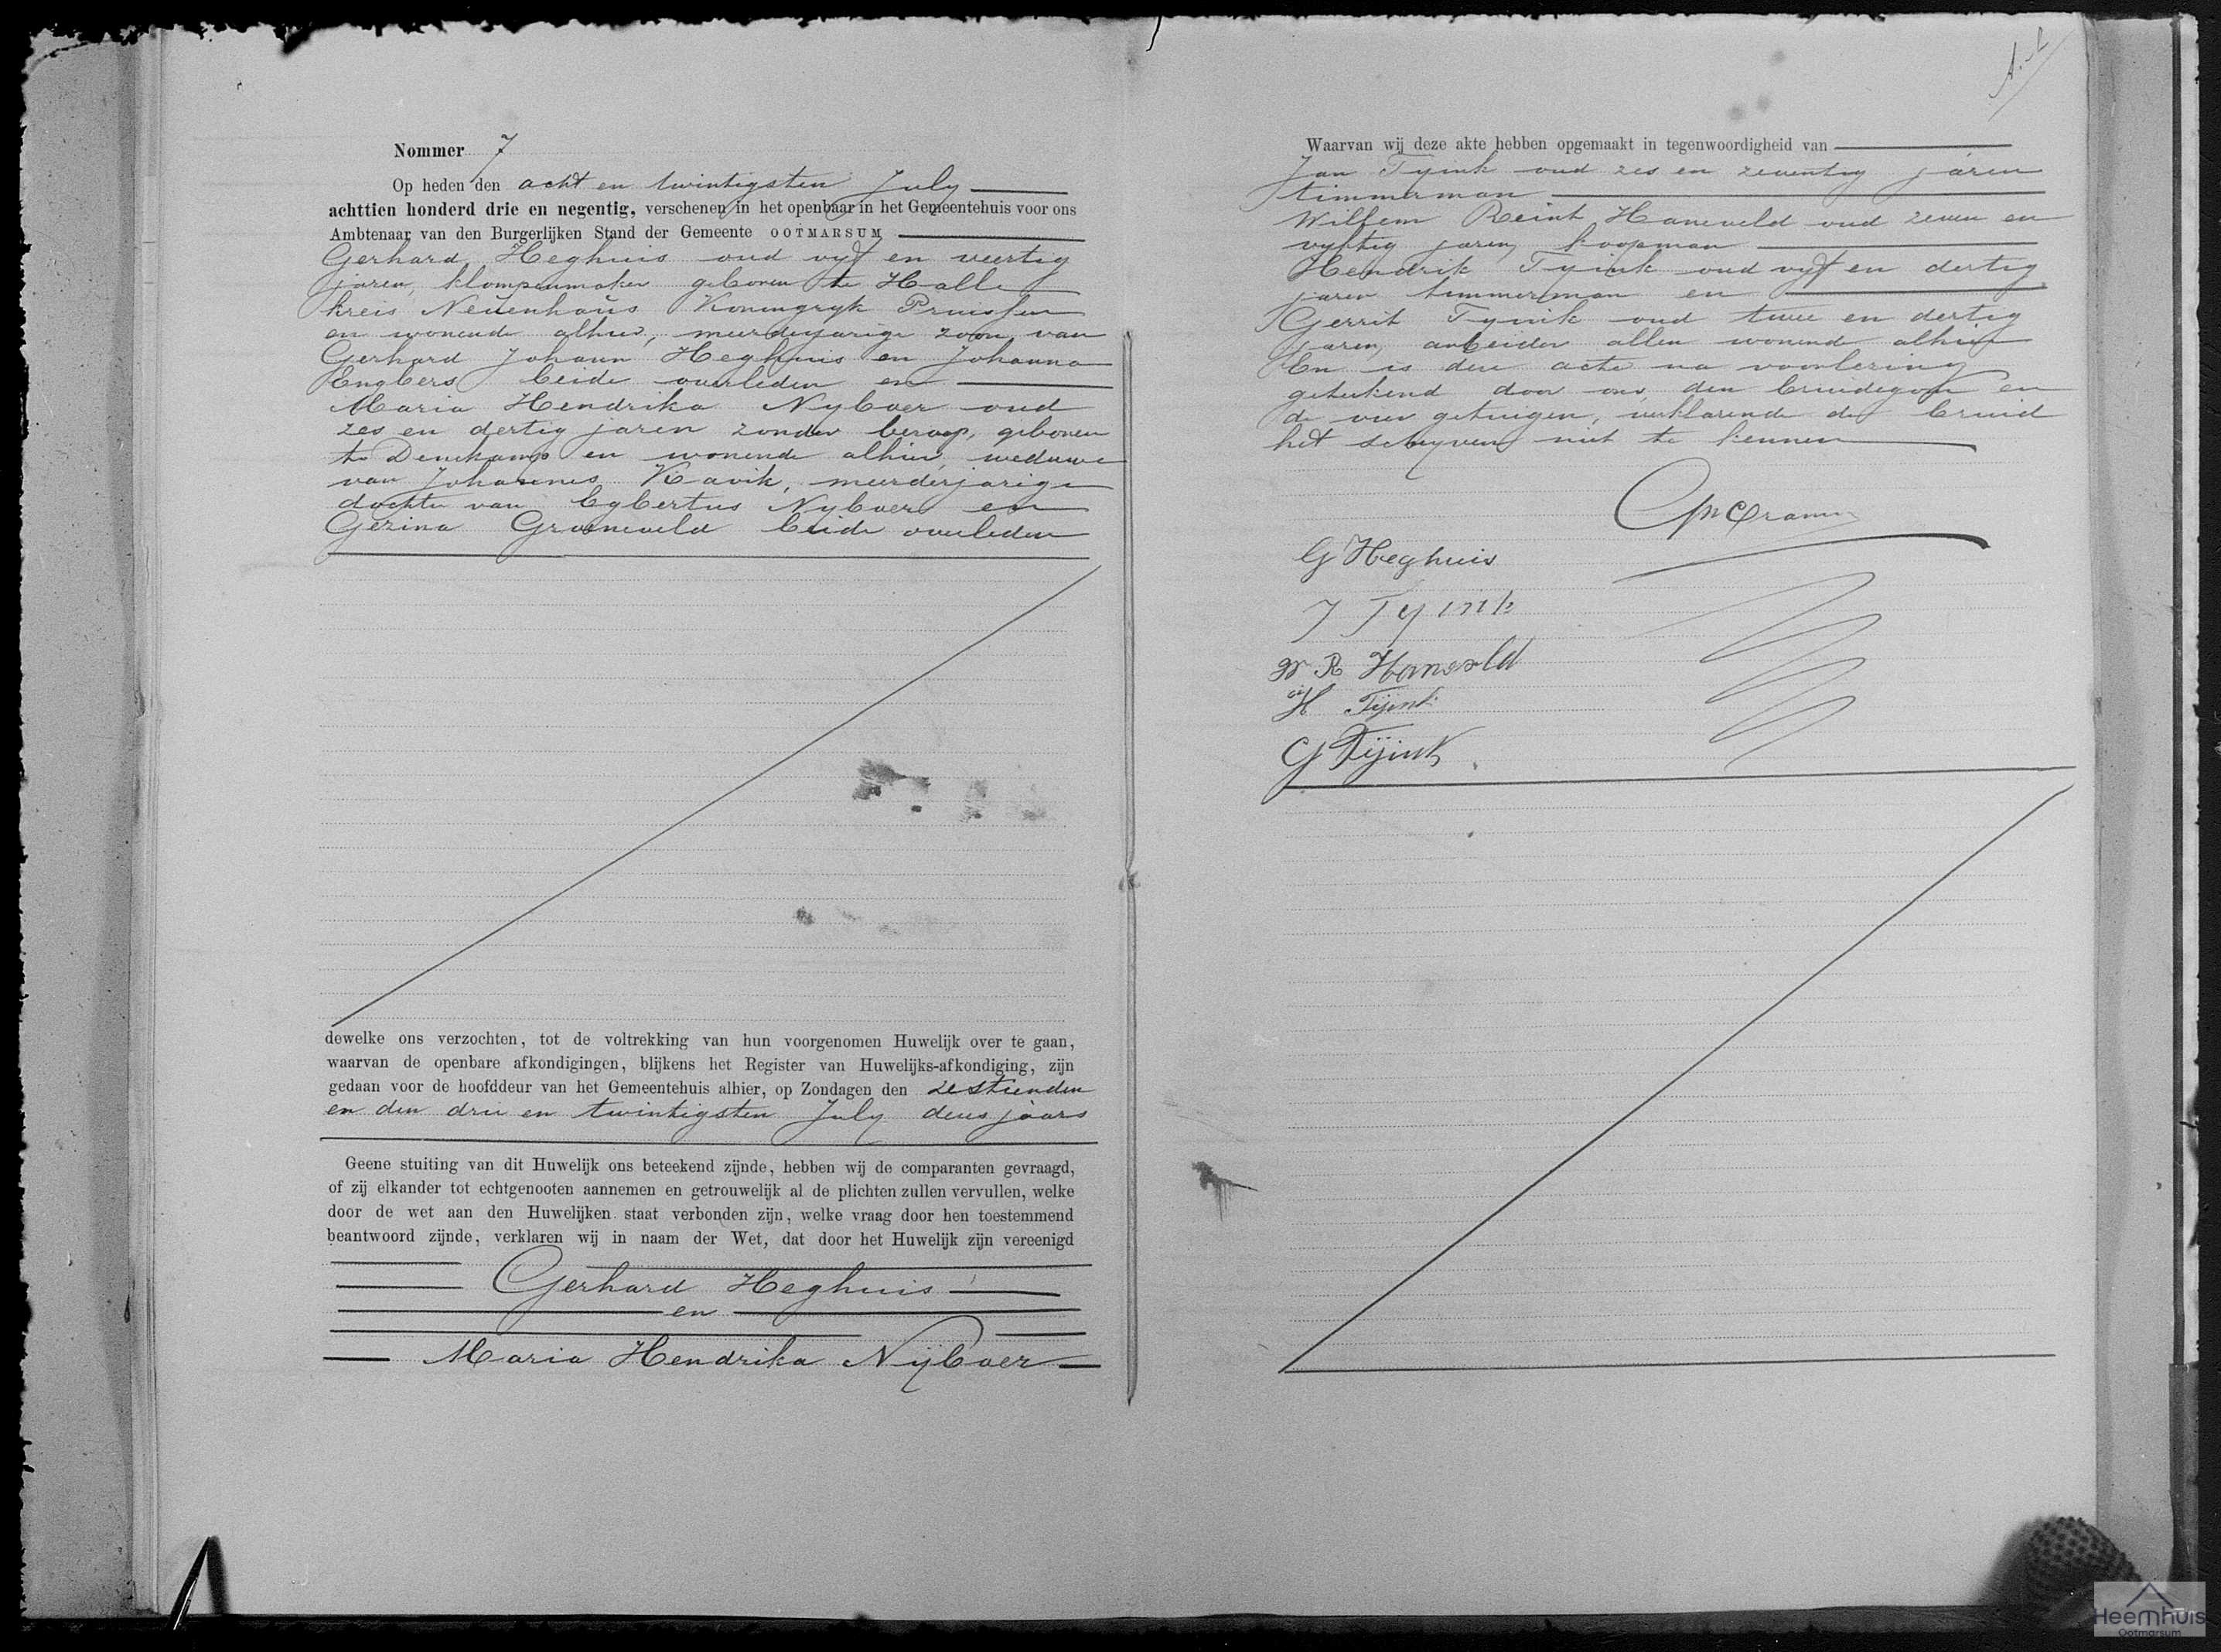 Nommer 7
Op heden den acht en twintigsten July
achttien honderd drie en negentig, verschenen in het openbaar in het Gemeentehuis voor ons
Ambtenaar van den Burgerlijken Stand der Gemeente OOTMARSUM
Gerhard Heghuis oud vyf en veertig
jaren, klompenmaker geboren te Halle
kreis Neuenhaus Koningryk Pruissen
en wonende alhier, meerderjarige zoon van
Gerhard Johann Heghuis en Johanna
Engbers beide overleden en
Maria Hendrika Nyboer oud
zes en dertig jaren zonder beroep, geboren
te Denekamp en wonende alhier, weduwe
van Johannes Kavik, meerderjarige
dochter van Egbertus Nyboer en
Gezina Groeneveld beide overleden
dewelke ons verzochten, tot de voltrekking van hun voorgenomen Huwelijk over te gaan,
waarvan de openbare afkondigingen, blijkens het Register van Huwelijks-afkondiging, zijn
gedaan voor de hoofddeur van het Gemeentehuis alhier, op Zondagen den zestienden
en den drie en twintigsten July dezes jaars
Geene stuiting van dit Huwelijk ons beteekend zijnde, hebben wij de comparanten gevraagd,
of zij elkander tot echtgenooten aannemen en getrouwelijk al de plichten zullen vervullen, welke
door de wet aan den Huwelijken staat verbonden zijn, welke vraag door hen toestemmend
beantwoord zijnde, verklaren wij in naam der Wet, dat door het Huwelijk zijn vereenigd
Gerhard Heghuis
en
Maria Hendrika Nijboer
Waarvan wij deze akte hebben opgemaakt in tegenwoordigheid van
Jan Tyink oud zes en zeventig jaren
timmerman
Willem Reint Haneveld oud zeven en
vyftig jaren, koopman
Hendrik Tyink oud vyf en dertig
jaren timmerman en
Gerrit Tyink oud twee en dertig
jaren, arbeider allen wonende alhier
En is deze acte na voorlezing
geteekend door ons, den bruidegom en
de vier getuigen, verklarende de bruid
het schryven niet te kennen
G Heghuis
J Tyink
W. R Haneveld
H Tijink
G Tijink
Heemhuis
Ootmarsum